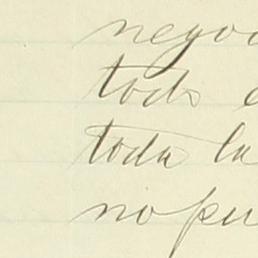 nego
todo
toda la
no pu